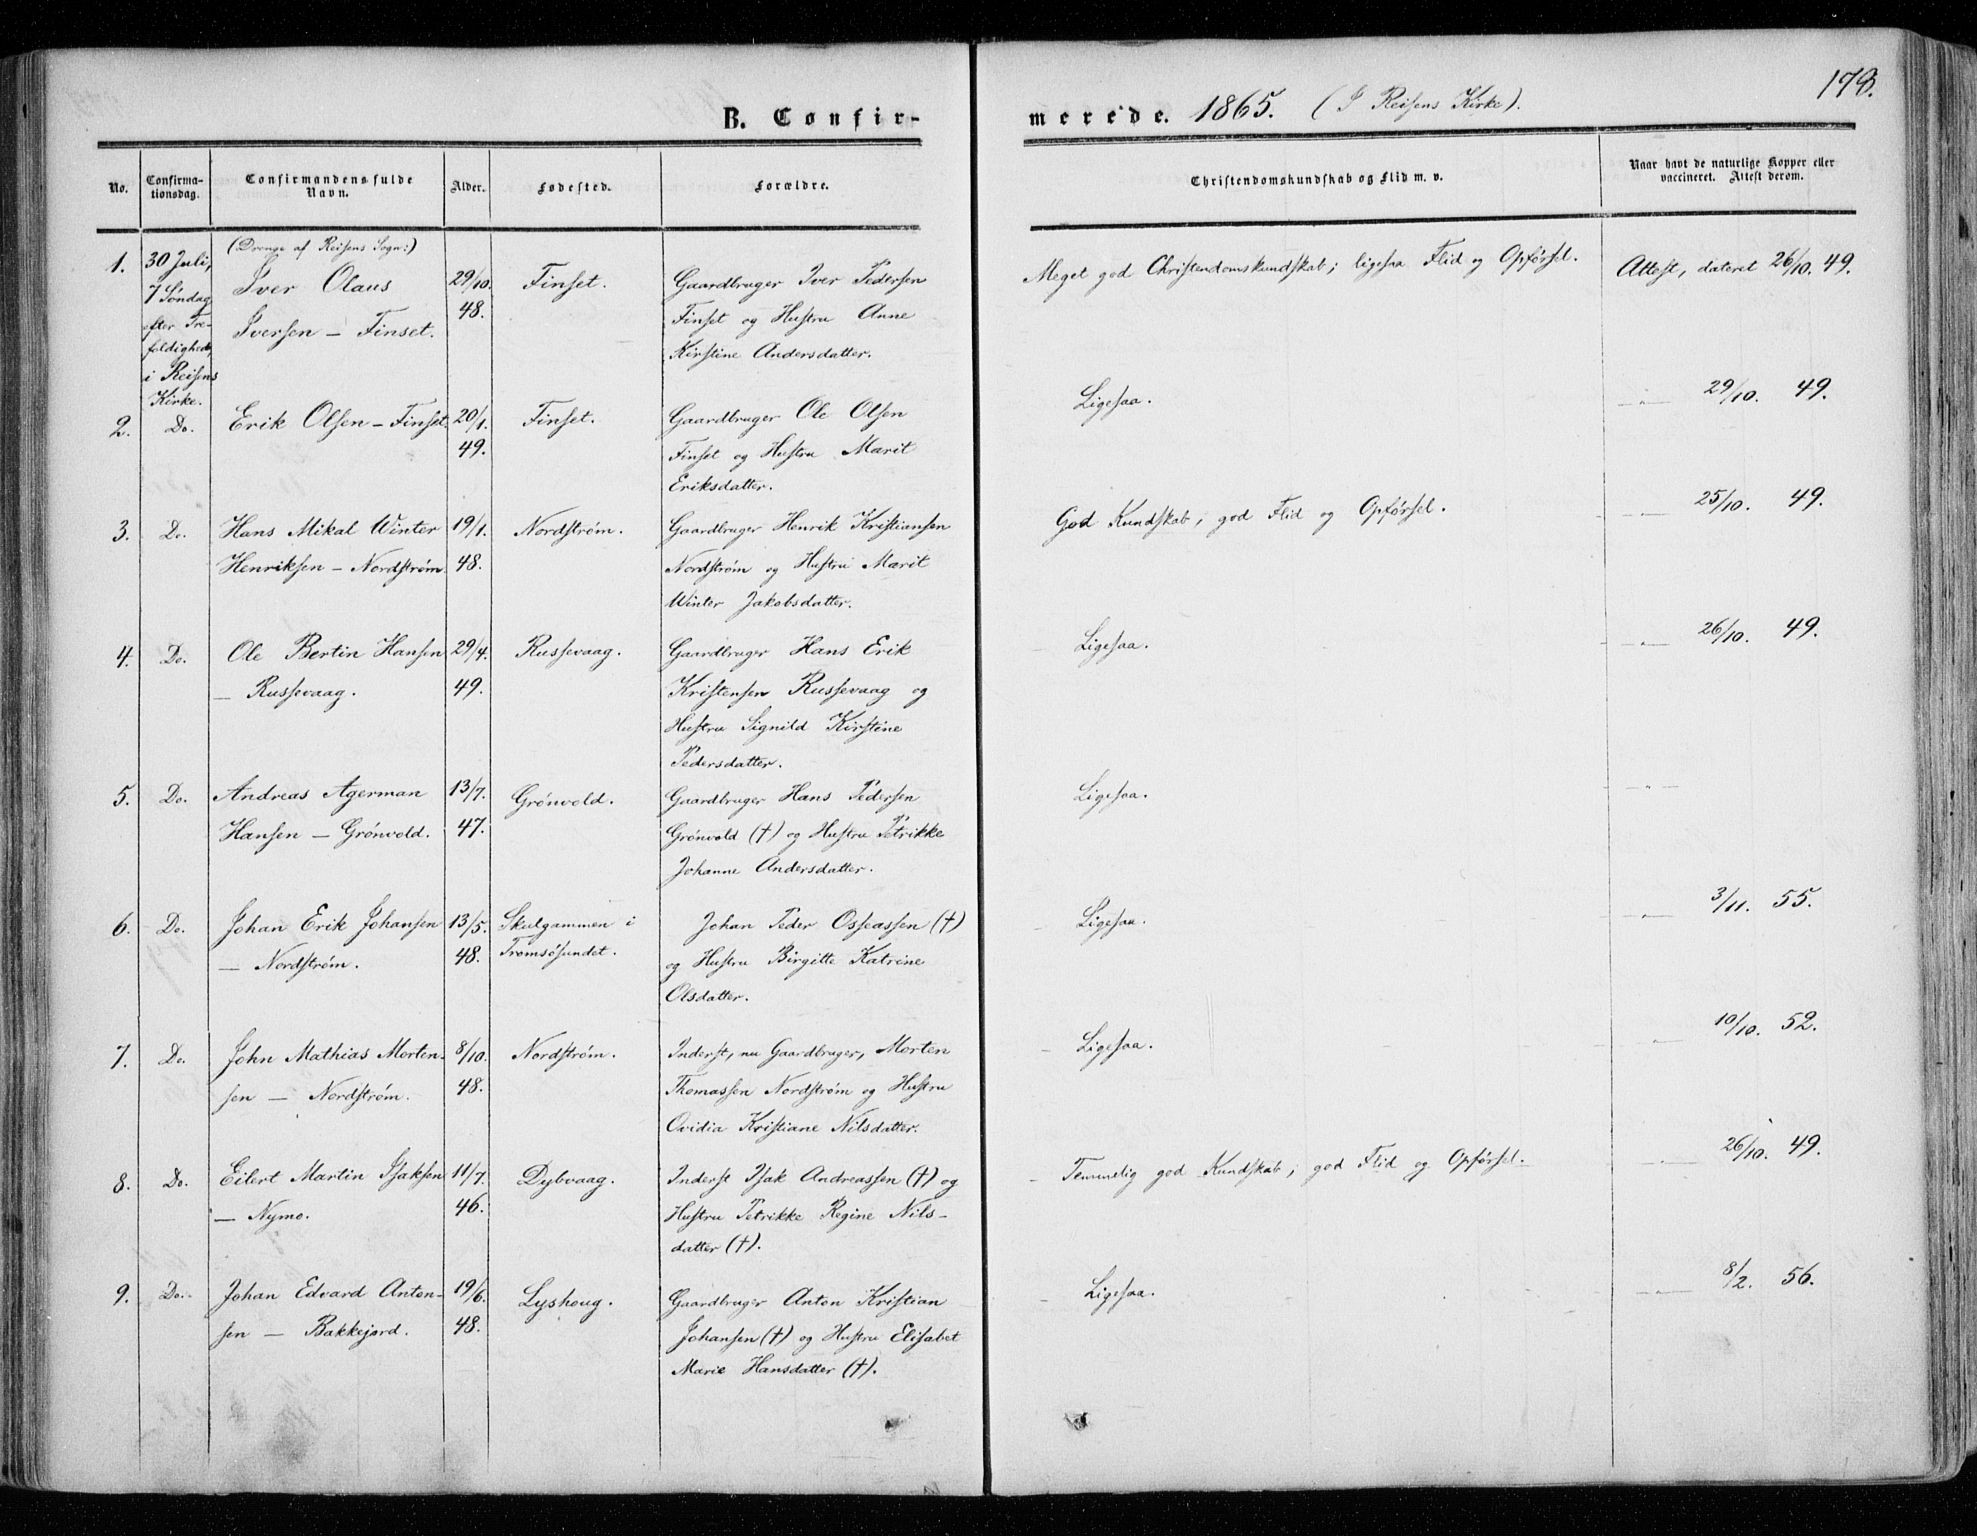 178.
B. Confirmerede. 1865. (I Reisens Kirke).
No. Confirmationsdag. Confirmandens fulde Navn. Alder. Fødested. Forældre. Christendomskundskab og Flid m. v. Naar havt de naturlige Kopper eller vaccineret. Attest derom.
(Drenge af Reisens Sogn:)
1. 30 Juli, 7 Søndag efter Trefoldighed, i Reisens Kirke. Iver Olaus Iversen – Finset. 29/10. 48. Finset. Gaardbruger Iver Pedersen Finset og Hustru Anne Kirstine Andersdatter. Meget god Christendomskundskab; ligesaa Flid og Opførsel. Attest, dateret 26/10. 49.
2. Do. Erik Olsen – Finset 20/1. 49. Finset. Gaardbruger Ole Olsen Finset og Hustru Marit Eriksdatter. Ligesaa. — „ — 29/10. 49.
3. Do. Hans Mikal Winter Henriksen – Nordstrøm. 19/1. 48. Nordstrøm. Gaardbruger Henrik Kristiansen Nordstrøm og Hustru Marit Winter Jakobsdatter. God Kundskab, god Flid og Opførsel. — „ — 25/10. 49.
4. Do. Ole Bertin Hansen – Russevaag. 29/4. 49. Russevaag. Gaardbruger Hans Erik Kristensen Russevaag og Hustru Signild Kirstine Pedersdatter. Ligesaa. — „ — 26/10. 49.
5. Do. Andreas Agerman Hansen – Grønvold. 13/7. 47. Grønvold. Gaardbruger Hans Pedersen Grønvold (†) og Hustru Petrikke Johanne Andersdatter. Ligesaa. — „ —
6. Do. Johan Erik Johansen – Nordstrøm. 13/5. 48. Skulgammen i Tromsøsundet. Johan Peder Osseassen (†) og Hustru Birgitte Katrine Olsdatter. Ligesaa. — „ — 3/11. 55.
7. Do. John Mathias Mortensen – Nordstrøm. 8/10. 48. Nordstrøm. Inderst, nu Gaardbruger, Morten Thomassen Nordstrøm og Hustru Ovidia Kristiane Nilsdatter. Ligesaa. — „ — 10/10. 52.
8. Do. Eilert Martin Isaksen – Nymo. 11/7. 46. Dybvaag. Inderst Isak Andreassen (†) og Hustru Petrikke Regine Nilsdatter (†). Temmelig god Kundskab; god Flid og Opførsel. — „ — 26/10. 49.
9. Do. Johan Edvard Antonsen – Bakkejord. 19/6. 48. Lyshoug. Gaardbruger Anton Kristian Johansen (†) og Hustru Elisabet Marie Hansdatter (†). Ligesaa. — „ — 8/2. 56.